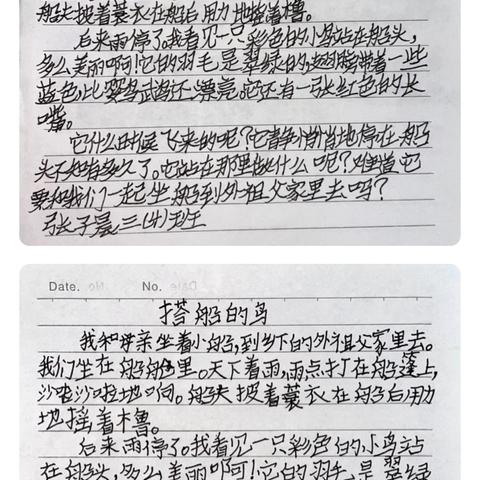 船夫披着蓑衣在船后用力地摇着橹。
后来雨停了。我看见一只彩色的小鸟站在船头,
多么美丽啊!它的羽毛是翠绿的,翅膀带着一些
蓝色,比鹦鹉还漂亮。它还有一张红色的长
嘴。
它什么时候飞来的呢?它静悄悄地停在船
头不知有多久了。它站在那里做什么呢?难道它
要和我们一起坐船到外祖父家里去吗?
张子晨 三(4)班
Date. No.
搭船的鸟
我和母亲坐着小船,到乡下的外祖父家里去。
我们坐在船舱里。天下着雨,雨点打在船篷上,
沙啦沙啦地响。船夫披着蓑衣在船后用力
地摇着橹。
后来雨停了。我看见一只彩色的小鸟站
在船头,多么美丽啊!它的羽毛是翠绿